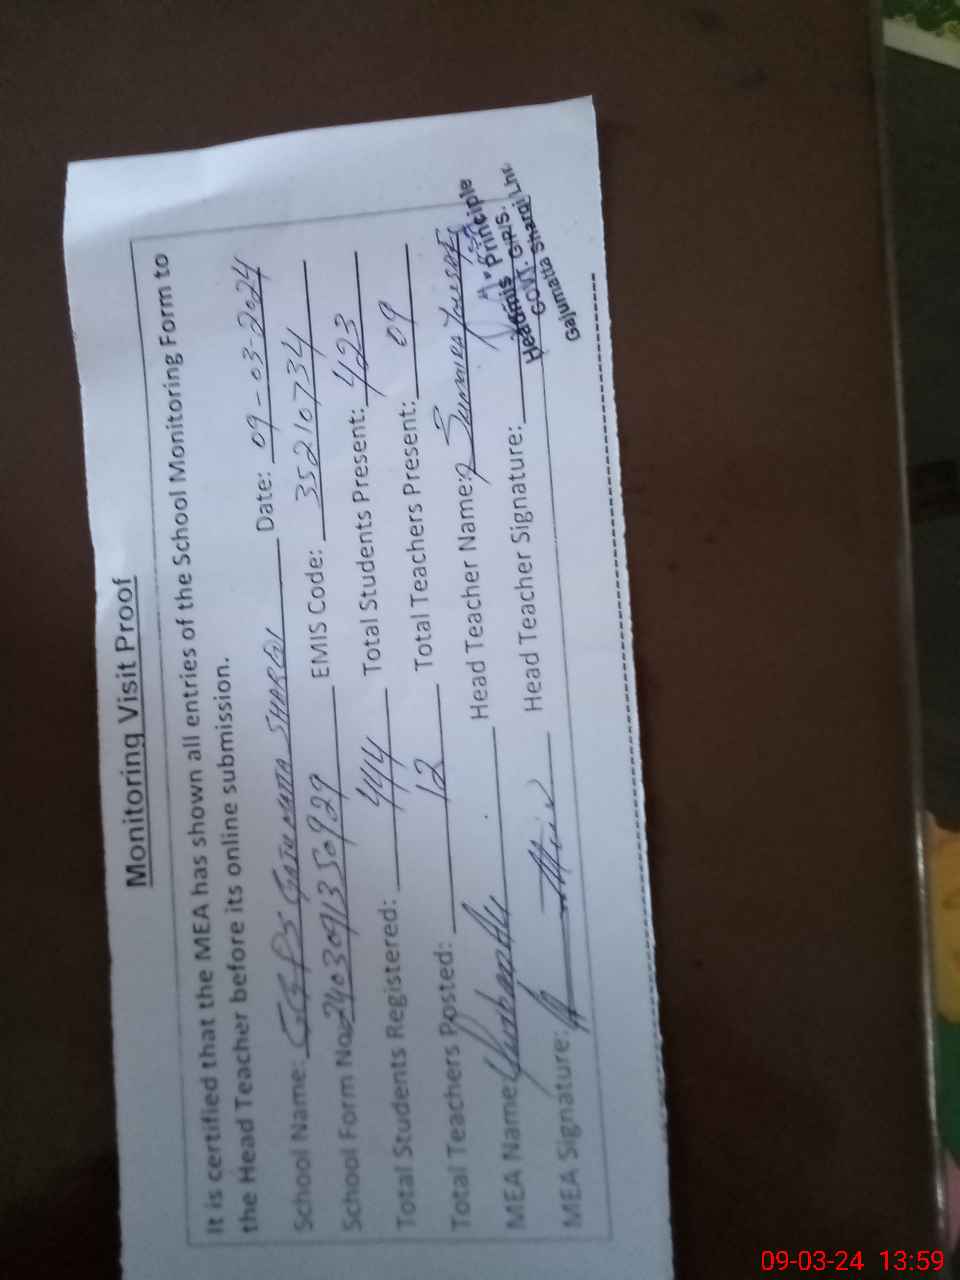 Monitoring Visit Proof
It is certified that the MEA has shown all entries of the School Monitoring Form to
the Head Teacher before its online submission.
School Name: GGPS GAJUMATTA SHARQI Date: 09-03-2024
School Form No: 240309135929 EMIS Code: 35210734
Total Students Registered: 444 Total Students Present: 423
Total Teachers Posted: 12 Total Teachers Present: 09
MEA Name: Head Teacher Name: Sumira Yousaf
MEA Signature: Head Teacher Signature:
Headmis Principle
GOVT. G.P/S.
Gajumatta Sharqi Lhr.
09-03-24 13:59